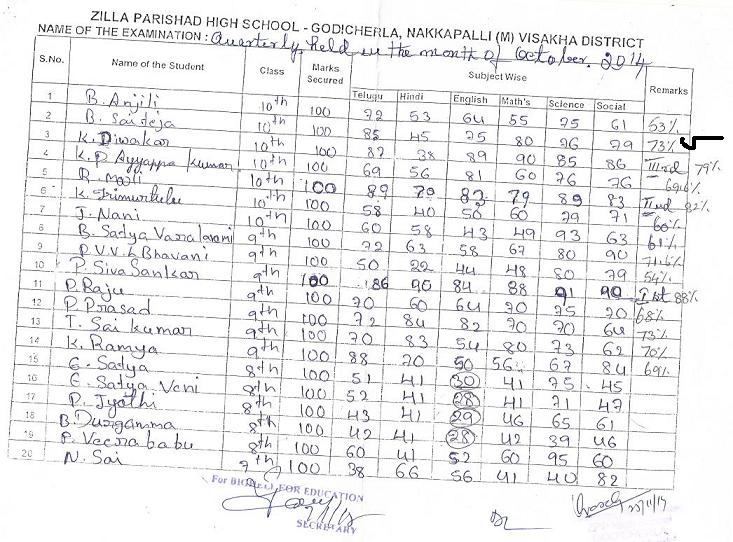 ZILLA PARISHAD HIGH SCHOOL - GODICHERLA, NAKKAPALLI (M) VISAKHA DISTRICT
NAME OF THE EXAMINATION : Quarterly, held in the month of October. 2014
S.No. Name of the Student Class Marks Secured Subject Wise Remarks
Telugu Hindi English Math's Science Social
1 B. Anjili 10th 100 72 53 64 55 75 61 63%
2 B. Saiteja 10th 100 85 45 75 80 76 79 73%
3 K. Diwakar 10th 100 87 38 89 90 85 86 IIIrd 79%
4 K.P Ayyappa Kumar 10th 100 69 56 81 60 76 76 69.6%
5 R. Mouli 10th 100 89 79 83 79 89 83 IInd 82%
6 K. Trimurthulu 10th 100 58 40 50 60 79 71 60%
7 J. Nani 10th 100 60 58 43 49 93 63 61%
8 B. Sadya Varalaxmi 9th 100 72 63 58 67 80 90 71.6%
9 P.V.V.L Bhavani 9th 100 50 22 44 48 80 79 54%
10 P. Siva Sankar 9th 100 86 90 84 88 91 90 Ist 88%
11 P. Raju 9th 100 70 60 64 70 75 70 68%
12 P. Prasad 9th 100 72 84 82 70 70 64 73%
13 T. Sai kumar 9th 100 70 83 54 80 73 62 70%
14 K. Ramya 9th 100 88 70 50 56 67 84 69%
15 G. Satya 8th 100 51 41 30 41 75 45
16 G. Satya Veni 8th 100 52 41 28 41 71 47
17 P. Jyothi 8th 100 43 41 29 46 65 61
18 B. Durgamma 8th 100 42 41 28 42 39 46
19 P. Veerababu 8th 100 60 41 52 60 95 60
20 N. Sai 7th 100 38 66 56 41 40 82
For FOR EDUCATION
SECRETARY